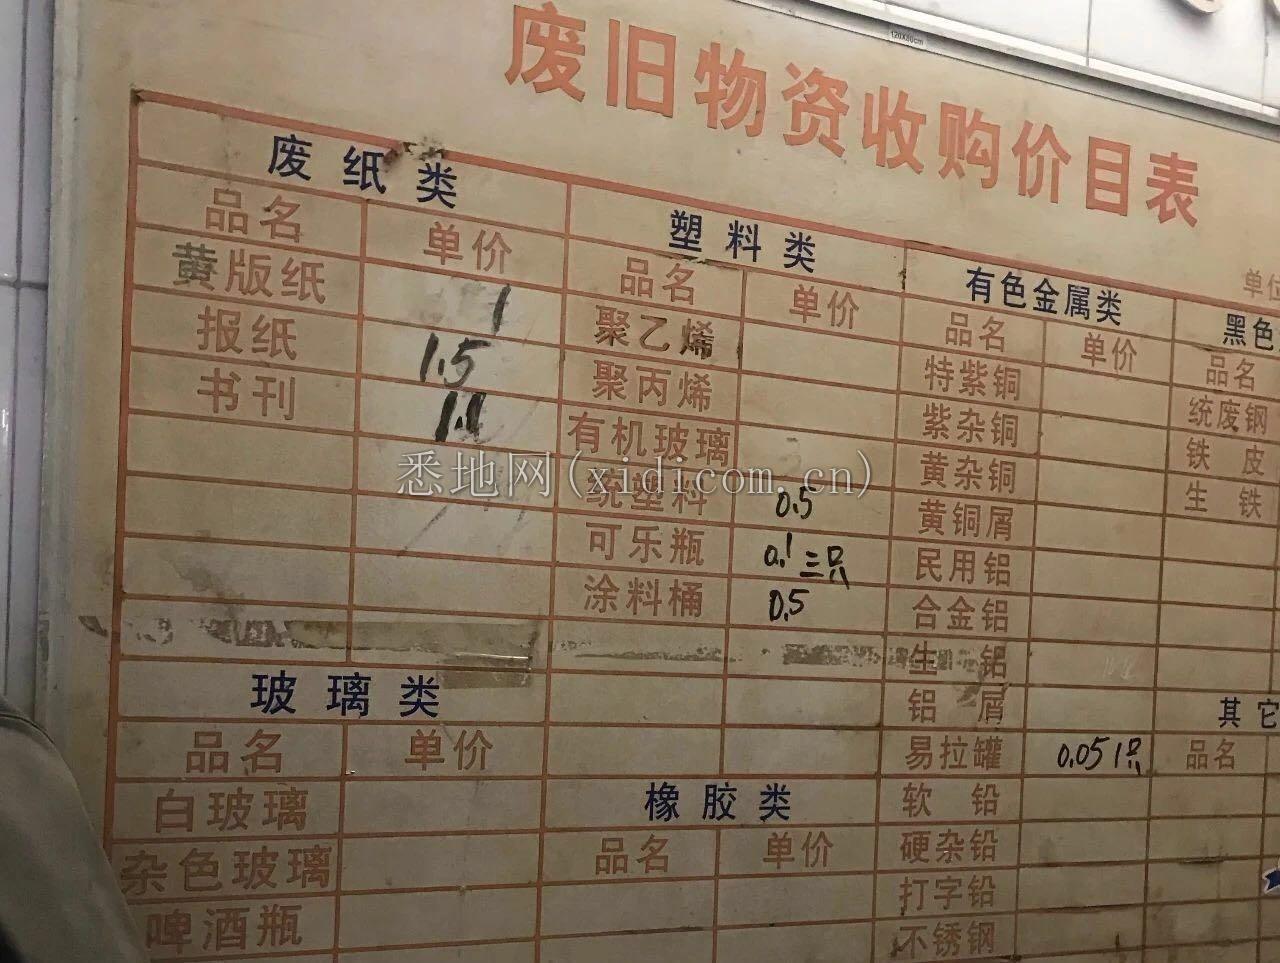 120X80cm
废旧物资收购价目表
单位
废纸类
品名 单价
黄版纸 1
报纸 1.5
书刊 1.1
玻璃类
品名 单价
白玻璃
杂色玻璃
啤酒瓶
塑料类
品名 单价
聚乙烯
聚丙烯
有机玻璃
统塑料 0.5
可乐瓶 0.1 三只
涂料桶 0.5
橡胶类
品名 单价
有色金属类
品名 单价
特紫铜
紫杂铜
黄杂铜
黄铜屑
民用铝
合金铝
生铝
铝屑
易拉罐 0.05 1只
软铅
硬杂铅
打字铅
不锈钢
黑色
品名
统废钢
铁皮
生铁
其它
品名
悉地网(xidicom.cn)